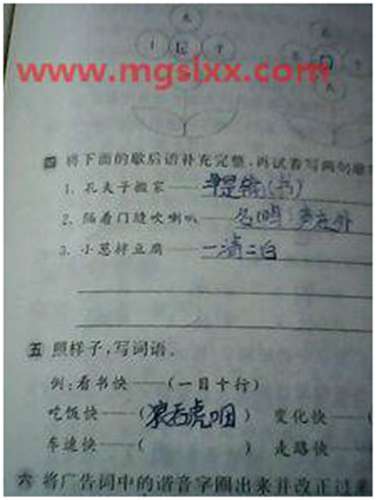 www.mgslxx.com
四 将下面的歇后语补充完整，再试着写两句歇
1. 孔夫子搬家——早是输（书）
2. 隔着门缝吹喇叭——名鸣声在外
3. 小葱拌豆腐——一清二白
五 照样子，写词语。
例：看书快——（一目十行）
吃饭快——（狼吞虎咽） 变化快——
车速快——（ ） 走路快——
六 将广告词中的谐音字圈出来并改正过来